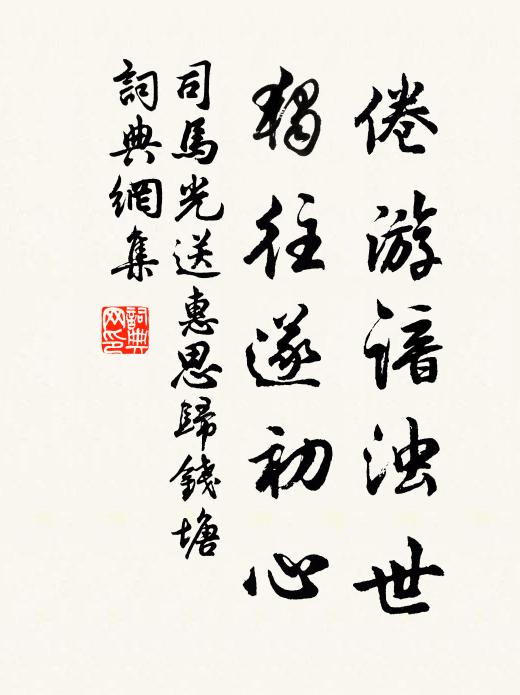 倦游諳浊世
獨往遂初心
司馬光送惠思歸錢塘
詞典網集
詞典网印